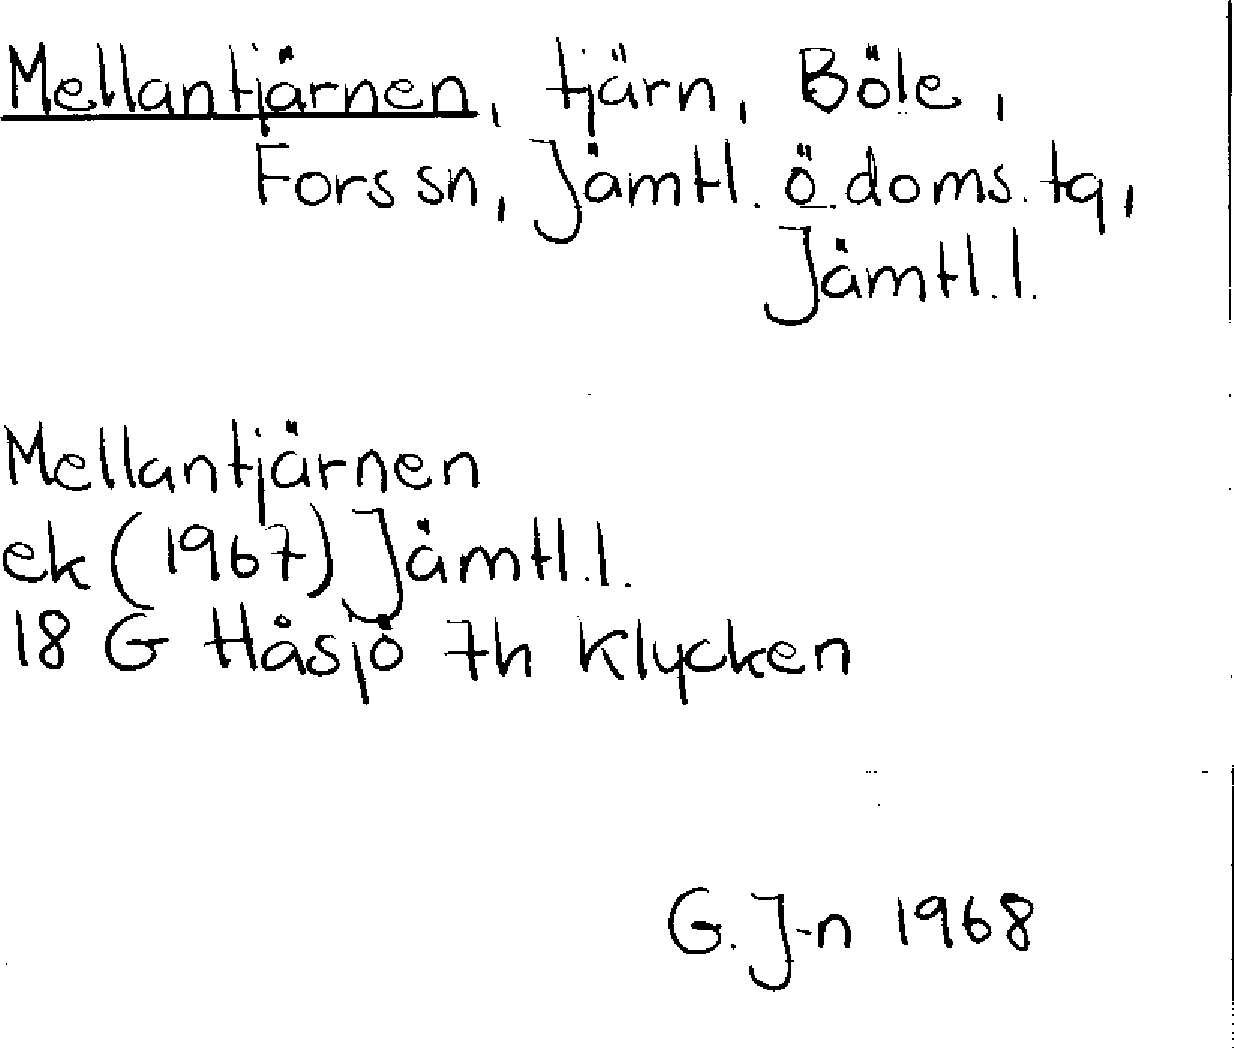 Mellantjärnen, tjärn, Böle,
Fors sn, Jämtl. ö. doms. tg,
Jämtl. l.
Mellantjärnen
ek (1967) Jämtl. l.
18 G Håsjö 7h Klycken
G. J-n 1968